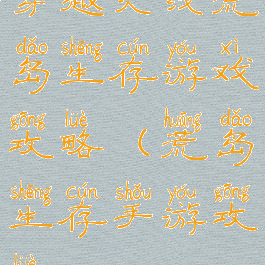 穿越火线荒
dǎo shēng cún yóu xì
岛生存游戏
gōng lüè huāng dǎo
攻略（荒岛
shēng cún shǒu yóu gōng
生存手游攻
lüè